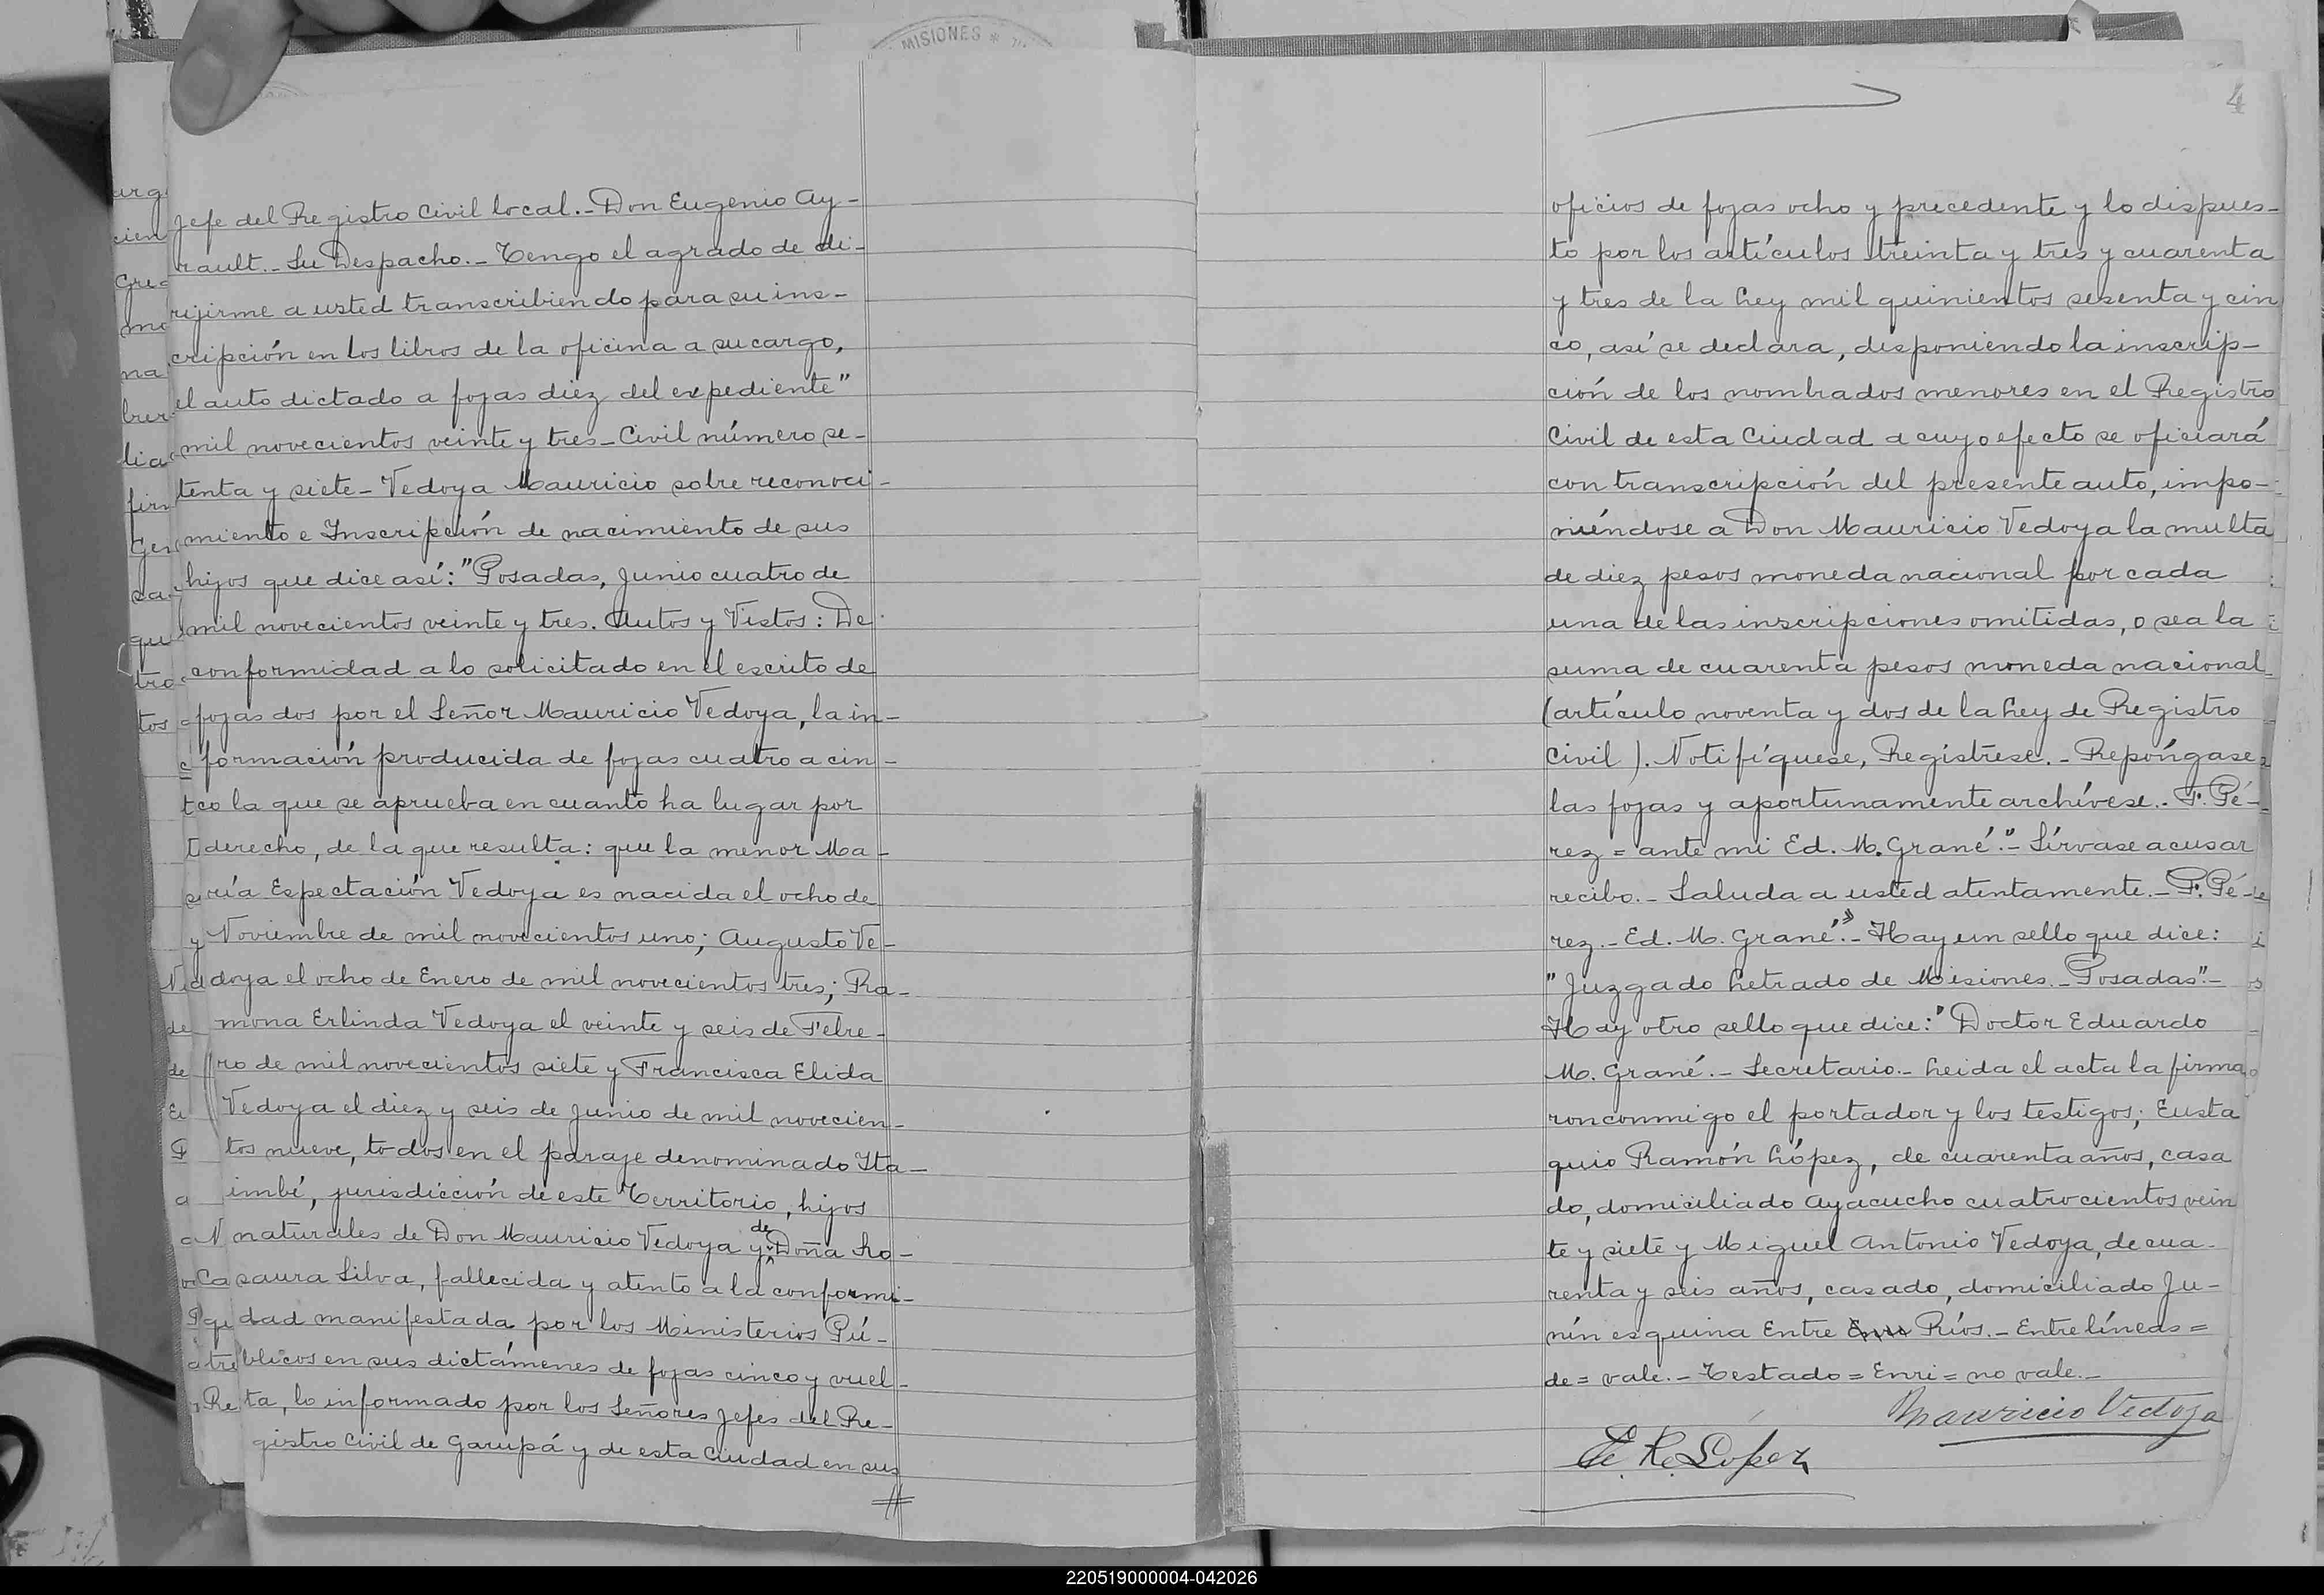 MISIONES *
Jefe del Registro Civil local.- Don Eugenio Ay-
rault.- Su Despacho.- Tengo el agrado de di-
rijirme a usted transcribiendo para su ins-
cripción en los libros de la oficina a su cargo,
el auto dictado a fojas diez del expediente"
mil novecientos veinte y tres - Civil número se-
tenta y siete - Vedoya Mauricio sobre reconoci-
miento e Inscripción de nacimiento de sus
hijos que dice así: "Posadas, Junio cuatro de
mil novecientos veinte y tres. Autos y Vistos: De
conformidad a lo solicitado en el escrito de
fojas dos por el Señor Mauricio Vedoya, la in-
formación producida de fojas cuatro a cin-
co la que se aprueba en cuanto ha lugar por
derecho, de la que resulta: que la menor Ma-
ría Espectación Vedoya es nacida el ocho de
Noviembre de mil novecientos uno; Augusto Ve-
doya el ocho de Enero de mil novecientos tres; Ra-
mona Erlinda Vedoya el veinte y seis de Febre-
ro de mil novecientos siete y Francisca Elida
Vedoya el diez y seis de Junio de mil novecien-
tos nueve, todos en el paraje denominado Ita-
imbé, jurisdicción de este Territorio, hijos
naturales de Don Mauricio Vedoya y de Doña Ro-
saura Silva, fallecida y atento a la conformi-
dad manifestada por los Ministerios Pú-
blicos en sus dictámenes de fojas cinco y vuel-
ta, lo informado por los Señores Jefes del Re-
gistro Civil de Garupá y de esta Ciudad en sus
4
oficios de fojas ocho y precedente y lo dispues-
to por los artículos treinta y tres y cuarenta
y tres de la Ley mil quinientos sesenta y cin
co, así se declara, disponiendo la inscrip-
ción de los nombrados menores en el Registro
Civil de esta Ciudad a cuyo efecto se oficiará
con transcripción del presente auto, impo-
niéndose a Don Mauricio Vedoya la multa
de diez pesos moneda nacional por cada
una de las inscripciones omitidas, o sea la
suma de cuarenta pesos moneda nacional
(artículo noventa y dos de la Ley de Registro
Civil). Notifíquese, Regístrese.- Repóngase
las fojas y aportunamente archívese.- F. Pé-
rez = ante mi Ed. M. Grané".- Sírvase acusar
recibo.- Saluda a usted atentamente.- F. Pé-
rez.- Ed. M. Grané".- Hay un sello que dice:
"Juzgado Letrado de Misiones.- Posadas".-
Hay otro sello que dice: "Doctor Eduardo
M. Grané.- Secretario.- Leida el acta la firma
ron conmigo el portador y los testigos; Eusta
quio Ramón López, de cuarenta años, casa
do, domiciliado Ayacucho cuatrocientos vein
te y siete y Miguel Antonio Vedoya, de cua-
renta y seis años, casado, domiciliado Ju-
nín esquina Entre Enri Ríos.- Entre líneas =
de = vale.- Testado = Enri = no vale.-
Mauricio Vedoya
E. R. López
220519000004-042026